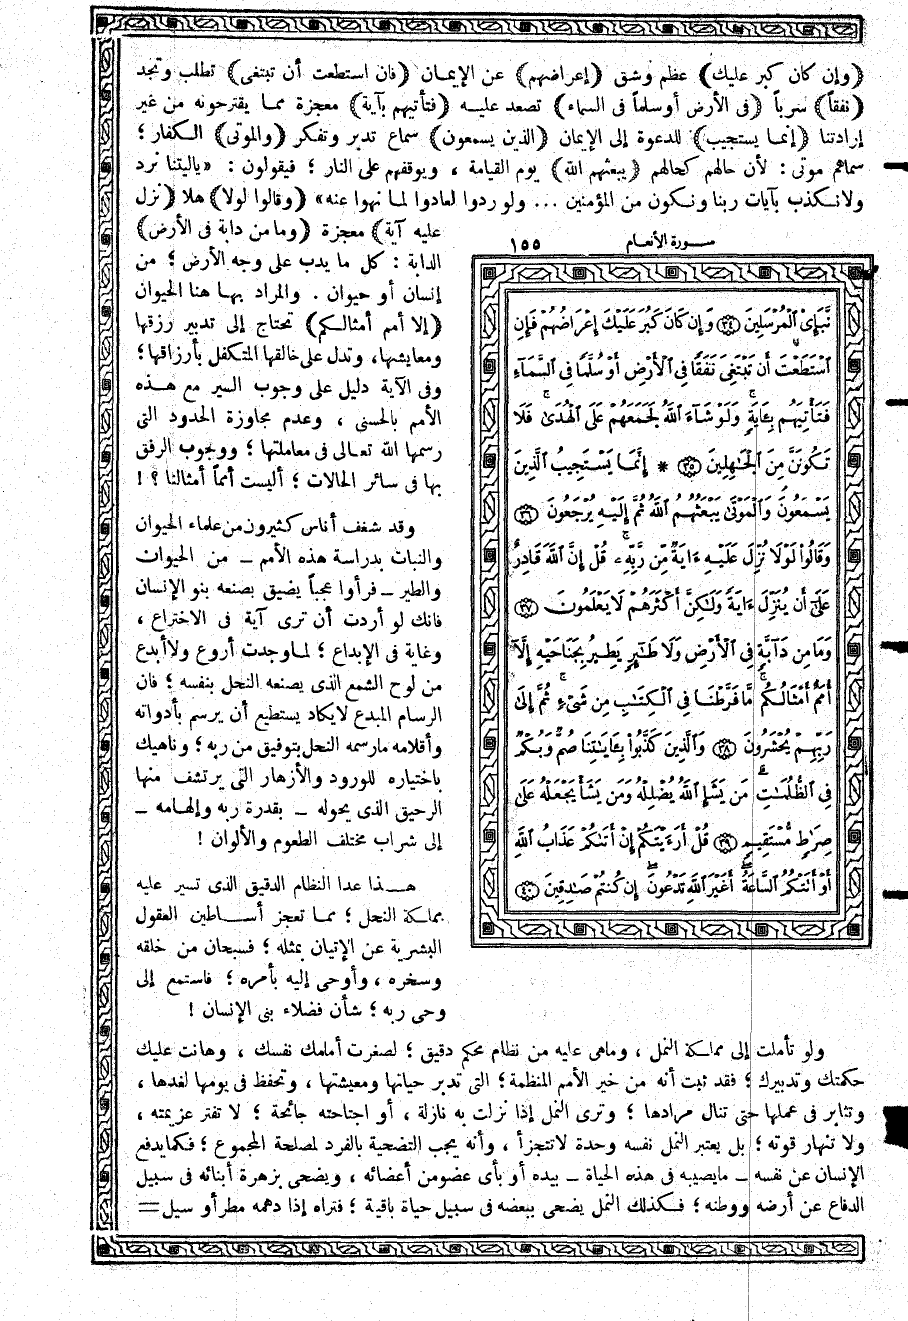 ﴿وإن كان كبر عليك﴾ عظم وشق ﴿إعراضهم﴾ عن الإيمان ﴿فان استطعت أن تبتغى﴾ تطلب وتجد
﴿نفقاً﴾ سرباً ﴿فى الأرض أو سلما فى السماء﴾ تصعد عليه ﴿فتأتيهم بآية﴾ معجزة مما يقترحونه من غير
إرادتنا ﴿إنما يستجيب﴾ للدعوة إلى الإيمان ﴿الذين يسمعون﴾ سماع تدبر وتفكر ﴿والموتى﴾ الكفار ؛
سماهم موتى : لأن حالهم كحالهم ﴿يبعثهم الله﴾ يوم القيامة ، ويوقفهم على النار ؛ فيقولون : «ياليتنا نرد
ولا نكذب بآيات ربنا ونكون من المؤمنين ... ولو ردوا لعادوا لما نهوا عنه» ﴿وقالوا لولا﴾ هلا ﴿نزل
عليه آية﴾ معجزة ﴿وما من دابة فى الأرض﴾
الدابة : كل ما يدب على وجه الأرض ؛ من
إنسان أو حيوان . والمراد بها هنا الحيوان
﴿إلا أمم أمثالكم﴾ تحتاج إلى تدبير رزقها
ومعايشها، وتدل على خالقها المتكفل بأرزاقها؛
وفى الآية دليل على وجوب السير مع هذه
الأمم بالحسنى ، وعدم مجاوزة الحدود التى
رسمها الله تعالى فى معاملتها ؛ ووجوب الرفق
بها فى سائر الحالات ؛ أليست أمماً أمثالنا ؟ !
وقد شغف أناس كثيرون من علماء الحيوان
والنبات بدراسة هذه الأمم – من الحيوات
والطير – فرأوا عجباً يضيق بصنعه بنو الإنسان
فانك لو أردت أن ترى آية فى الاختراع ،
وغاية فى الإبداع ؛ لما وجدت أروع ولا أبدع
من لوح الشمع الذى يصنعه النحل بنفسه ؛ فان
الرسام المبدع لا يكاد يستطيع أن يرسم بأدواته
وأقلامه ما رسمه النحل بتوفيق من ربه ؛ وناهيك
باختياره للورود والأزهار التى يرتشف منها
الرحيق الذى يحوله – بقدرة ربه وإلهامه –
إلى شراب مختلف الطعوم والألوان !
هذا عدا النظام الدقيق الذى تسير عليه
مملكة النحل ؛ مما تعجز أساطين العقول
البشرية عن الإتيان بمثله ؛ فسبحان من خلقه
وسخره ، وأوحى إليه بأمره ؛ فاستمع إلى
وحى ربه ؛ شأن فضلاء بنى الإنسان !
سورة الأنعام ١٥٥
نَّبَإِىْ الْمُرْسَلِينَ ﴿٣٤﴾ وَإِن كَانَ كَبُرَ عَلَيْكَ إِعْرَاضُهُمْ فَإِنِ
اسْتَطَعْتَ أَن تَبْتَغِىَ نَفَقًا فِى الْأَرْضِ أَوْ سُلَّمًا فِى السَّمَآءِ
فَتَأْتِيَهُم بِـَٔايَةٍ وَلَوْ شَآءَ اللَّهُ لَجَمَعَهُمْ عَلَى الْهُدَىٰ فَلَا
تَكُونَنَّ مِنَ الْجَٰهِلِينَ ﴿٣٥﴾ * إِنَّمَا يَسْتَجِيبُ الَّذِينَ
يَسْمَعُونَ وَالْمَوْتَىٰ يَبْعَثُهُمُ اللَّهُ ثُمَّ إِلَيْهِ يُرْجَعُونَ ﴿٣٦﴾
وَقَالُوا لَوْلَا نُزِّلَ عَلَيْهِ ءَايَةٌ مِّن رَّبِّهِۦ قُلْ إِنَّ اللَّهَ قَادِرٌ
عَلَىٰٓ أَن يُنَزِّلَ ءَايَةً وَلَٰكِنَّ أَكْثَرَهُمْ لَا يَعْلَمُونَ ﴿٣٧﴾
وَمَا مِن دَآبَّةٍ فِى الْأَرْضِ وَلَا طَٰٓئِرٍ يَطِيرُ بِجَنَاحَيْهِ إِلَّآ
أُمَمٌ أَمْثَالُكُم مَّا فَرَّطْنَا فِى الْكِتَٰبِ مِن شَىْءٍ ثُمَّ إِلَىٰ
رَبِّهِمْ يُحْشَرُونَ ﴿٣٨﴾ وَالَّذِينَ كَذَّبُوا بِـَٔايَٰتِنَا صُمٌّ وَبُكْمٌ
فِى الظُّلُمَٰتِ مَن يَشَإِ اللَّهُ يُضْلِلْهُ وَمَن يَشَأْ يَجْعَلْهُ عَلَىٰ
صِرَٰطٍ مُّسْتَقِيمٍ ﴿٣٩﴾ قُلْ أَرَءَيْتَكُمْ إِنْ أَتَىٰكُمْ عَذَابُ اللَّهِ
أَوْ أَتَتْكُمُ السَّاعَةُ أَغَيْرَ اللَّهِ تَدْعُونَ إِن كُنتُمْ صَٰدِقِينَ ﴿٤٠﴾
ولو تأملت إلى مملكة النمل ، وماهى عليه من نظام محكم دقيق ؛ لصغرت أمامك نفسك ، وهانت عليك
حكمتك وتدبيرك ؛ فقد ثبت أنه من خير الأمم المنظمة ؛ التى تدبر حياتها ومعيشتها ، وتحفظ فى يومها لغدها ،
وتثابر فى عملها حتى تنال مرادها ؛ وترى النمل إذا نزلت به نازلة ، أو اجتاحته جائحة ؛ لا تفتر عزيمته ،
ولا تنهار قوته ؛ بل يعتبر النمل نفسه وحدة لا تتجزأ ، وأنه يجب التضحية بالفرد لمصلحة المجموع ؛ فكما يدفع
الإنسان عن نفسه – ما يصيبه فى هذه الحياة – بيده أو بأى عضو من أعضائه ، ويضحى بزهرة أبنائه فى سبيل
الدفاع عن أرضه ووطنه ؛ فكذلك النمل يضحى ببعضه فى سبيل حياة باقية ؛ فتراه إذا دهمه مطر أو سيل =